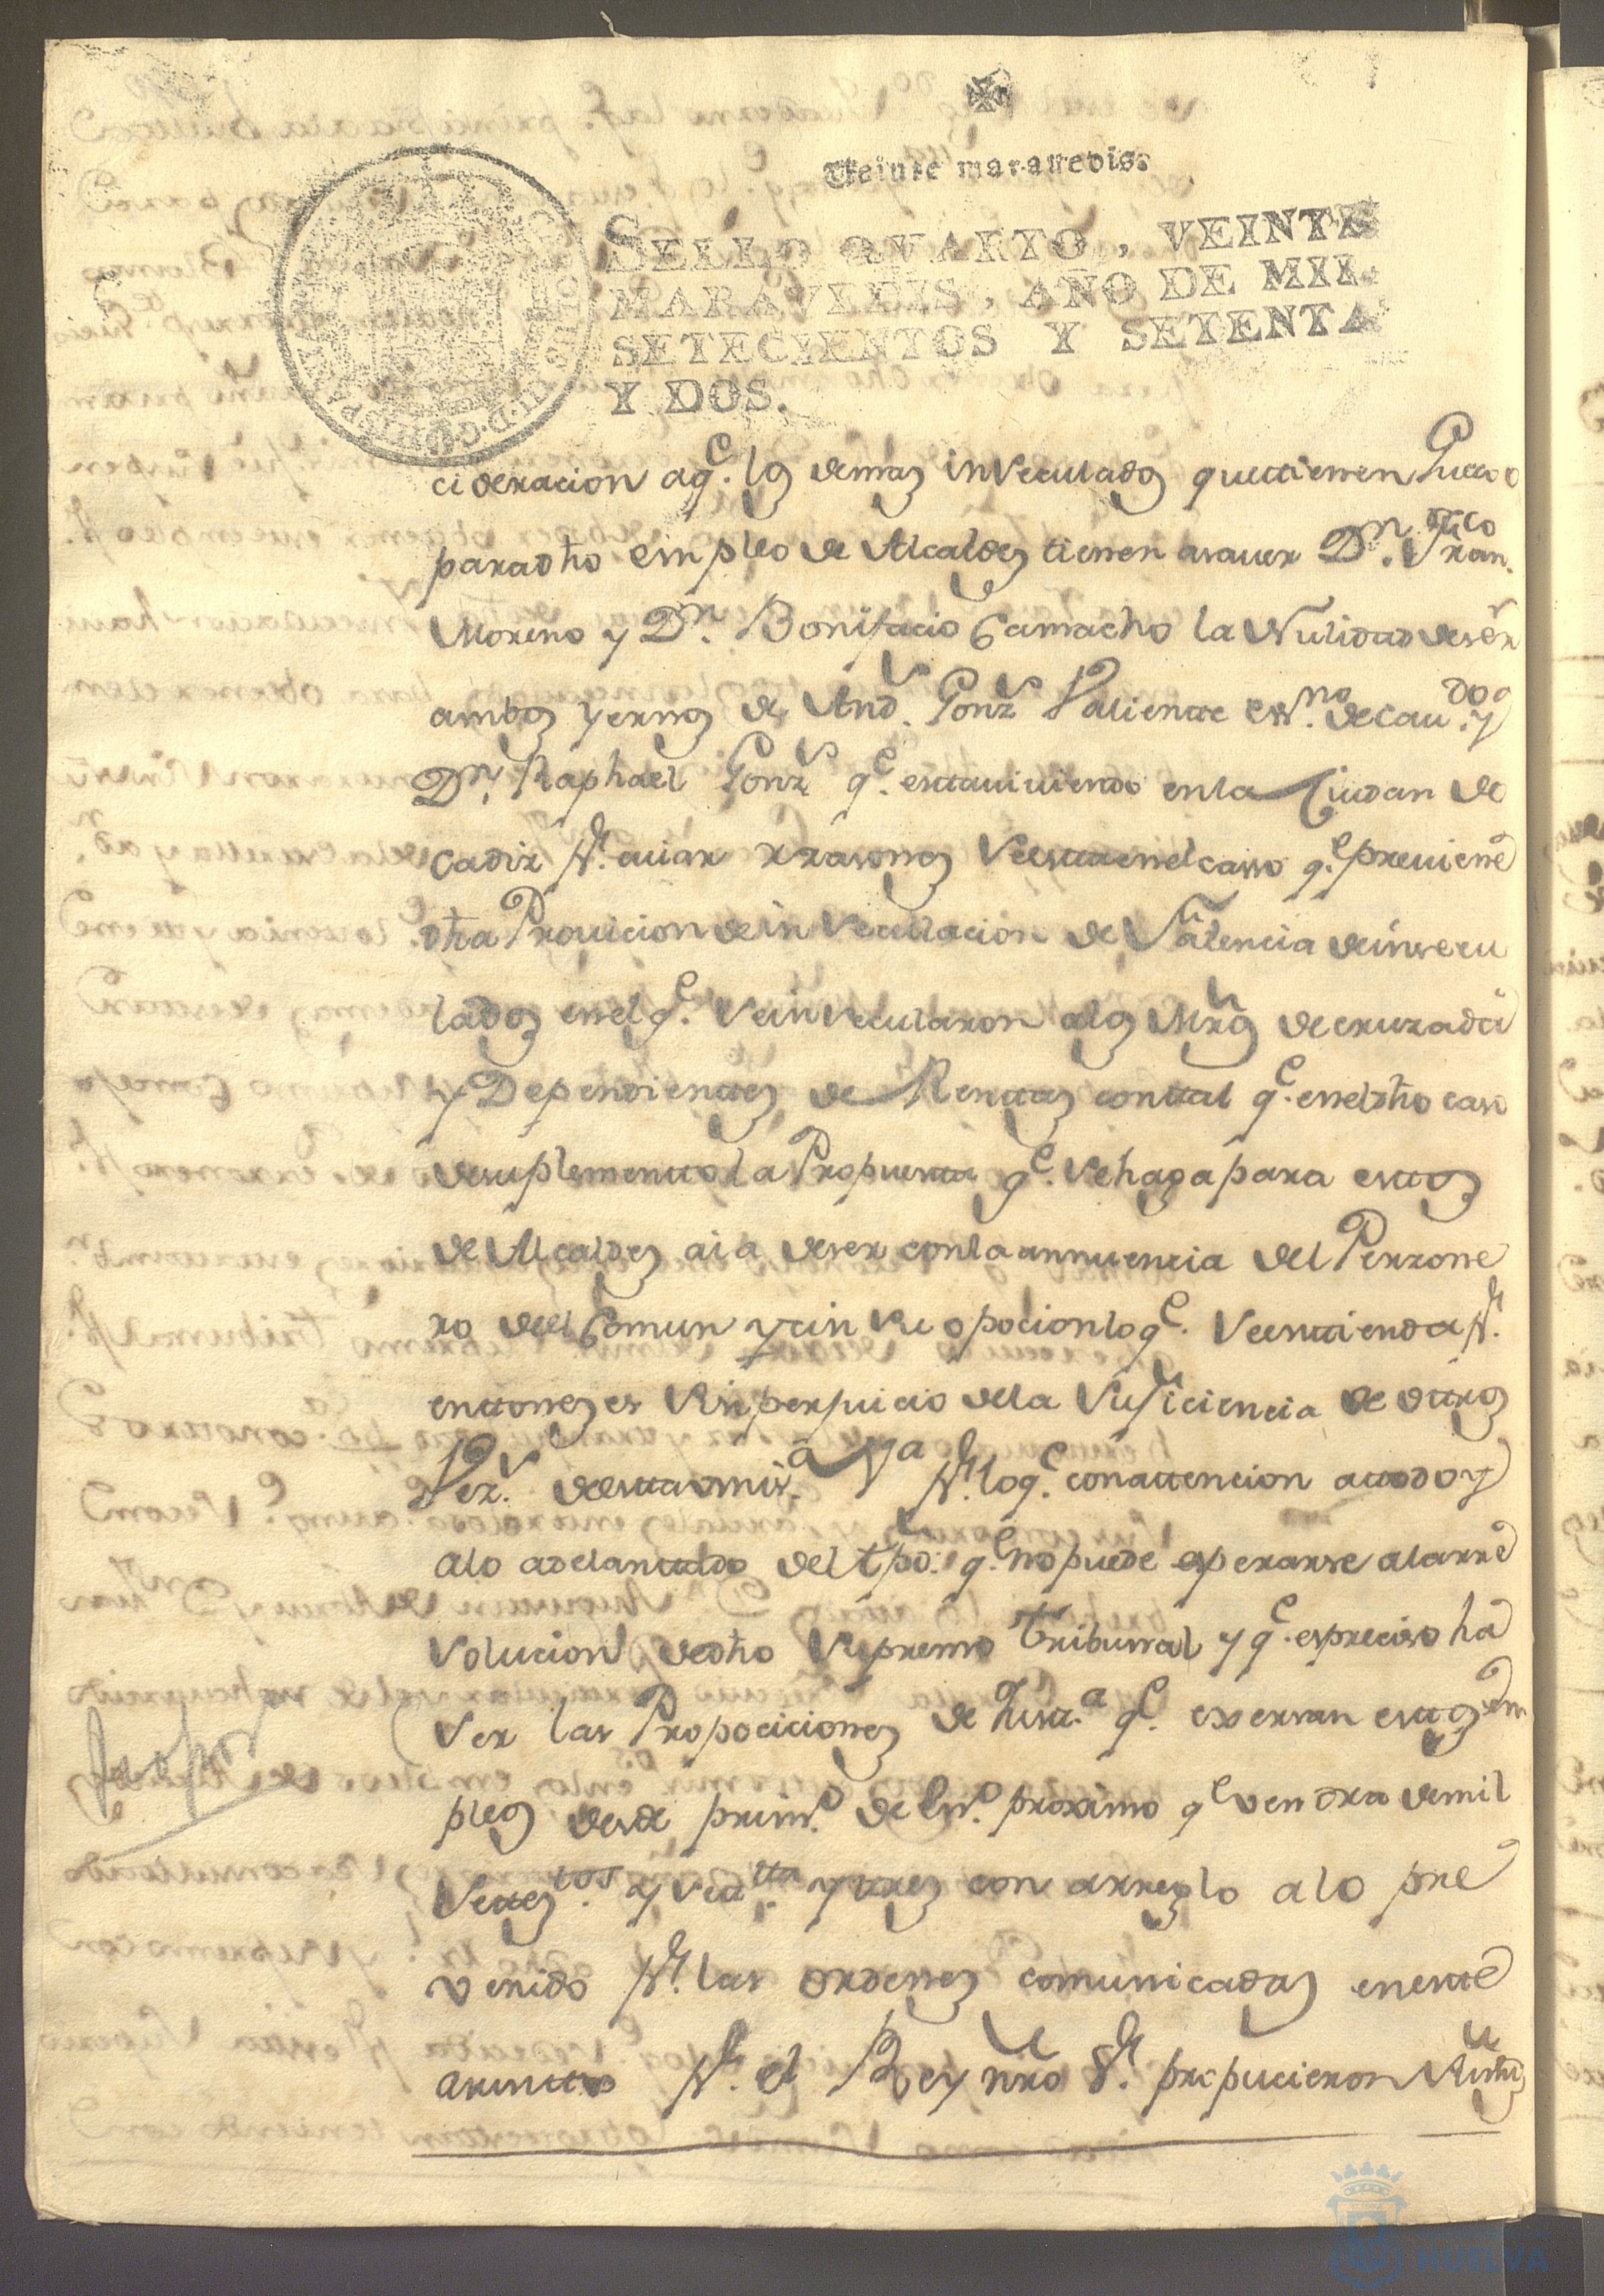 Veinte marauedis.
SELLO QVARTO, VEINTE
MARAVEDIS, AÑO DE MIL
SETECIENTOS Y SETENTA
Y DOS.
cideracion aqe. los demas inseculados quetienen hueco
paradho empleo de Alcaldes tienen asauer Dn. Franco.
Moreno y Dn. Bonifacio Camacho la Nulidad deser
ambos yernos de Ands. Gonzs Valiente essno. decaudos. y
Dn. Raphael Gonzs qe. estauiuiendo enla Ciudad de
Cadiz pr. cuias rrasones seestaenelcasso qe. preuiene
dha Prouicion deinseculacion de Falencia deinsecu
lados enel qe. seinsecularon alos Mros decruzada
y Dependientes de Rentas contal qe. eneldho caso
desuplemento la Propuesta qe. sehaga para estos
de Alcaldes aia deser conla annuencia del Perzone
ro del Comun y sin su opocion lo qe. seentienda pr.
entonces es sin perjuicio dela suficiencia de otros
Vezs. deesta omisa. Va pr. loqe. conattencion atodo y
alo adelantado del tpo: qe. no puede esperarse alarre
solucion dedho supremo tribunal y qe. espreciso ha
ser las Propociciones de Justa. qe. exersan estos em
pleos desde primo. de Eno. proximo qe vendra demil
Setestos. y settta. y tres con arreglo alo pre
venido pr. las ordenes comunicadas eneste
asumto pr. el Rey nro Sr. propucieron
propos
HUELVA